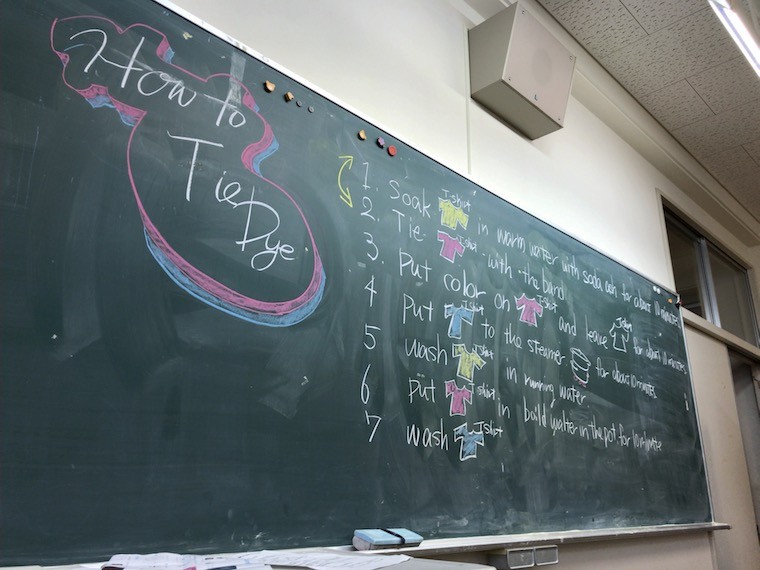 How to
Tie Dye
1. Soak T-shirt in warm water with soda ash for about 10 minutes.
2. Tie T-shirt with the band
3. Put color on T-shirt and leave T-shirt for about 10 minutes
4 Put T-shirt to the steamer for about 10 minutes.
5 wash T-shirt in running water
6 Put T shirt in boild water in the pot for 10 minute
7 wash T shirt